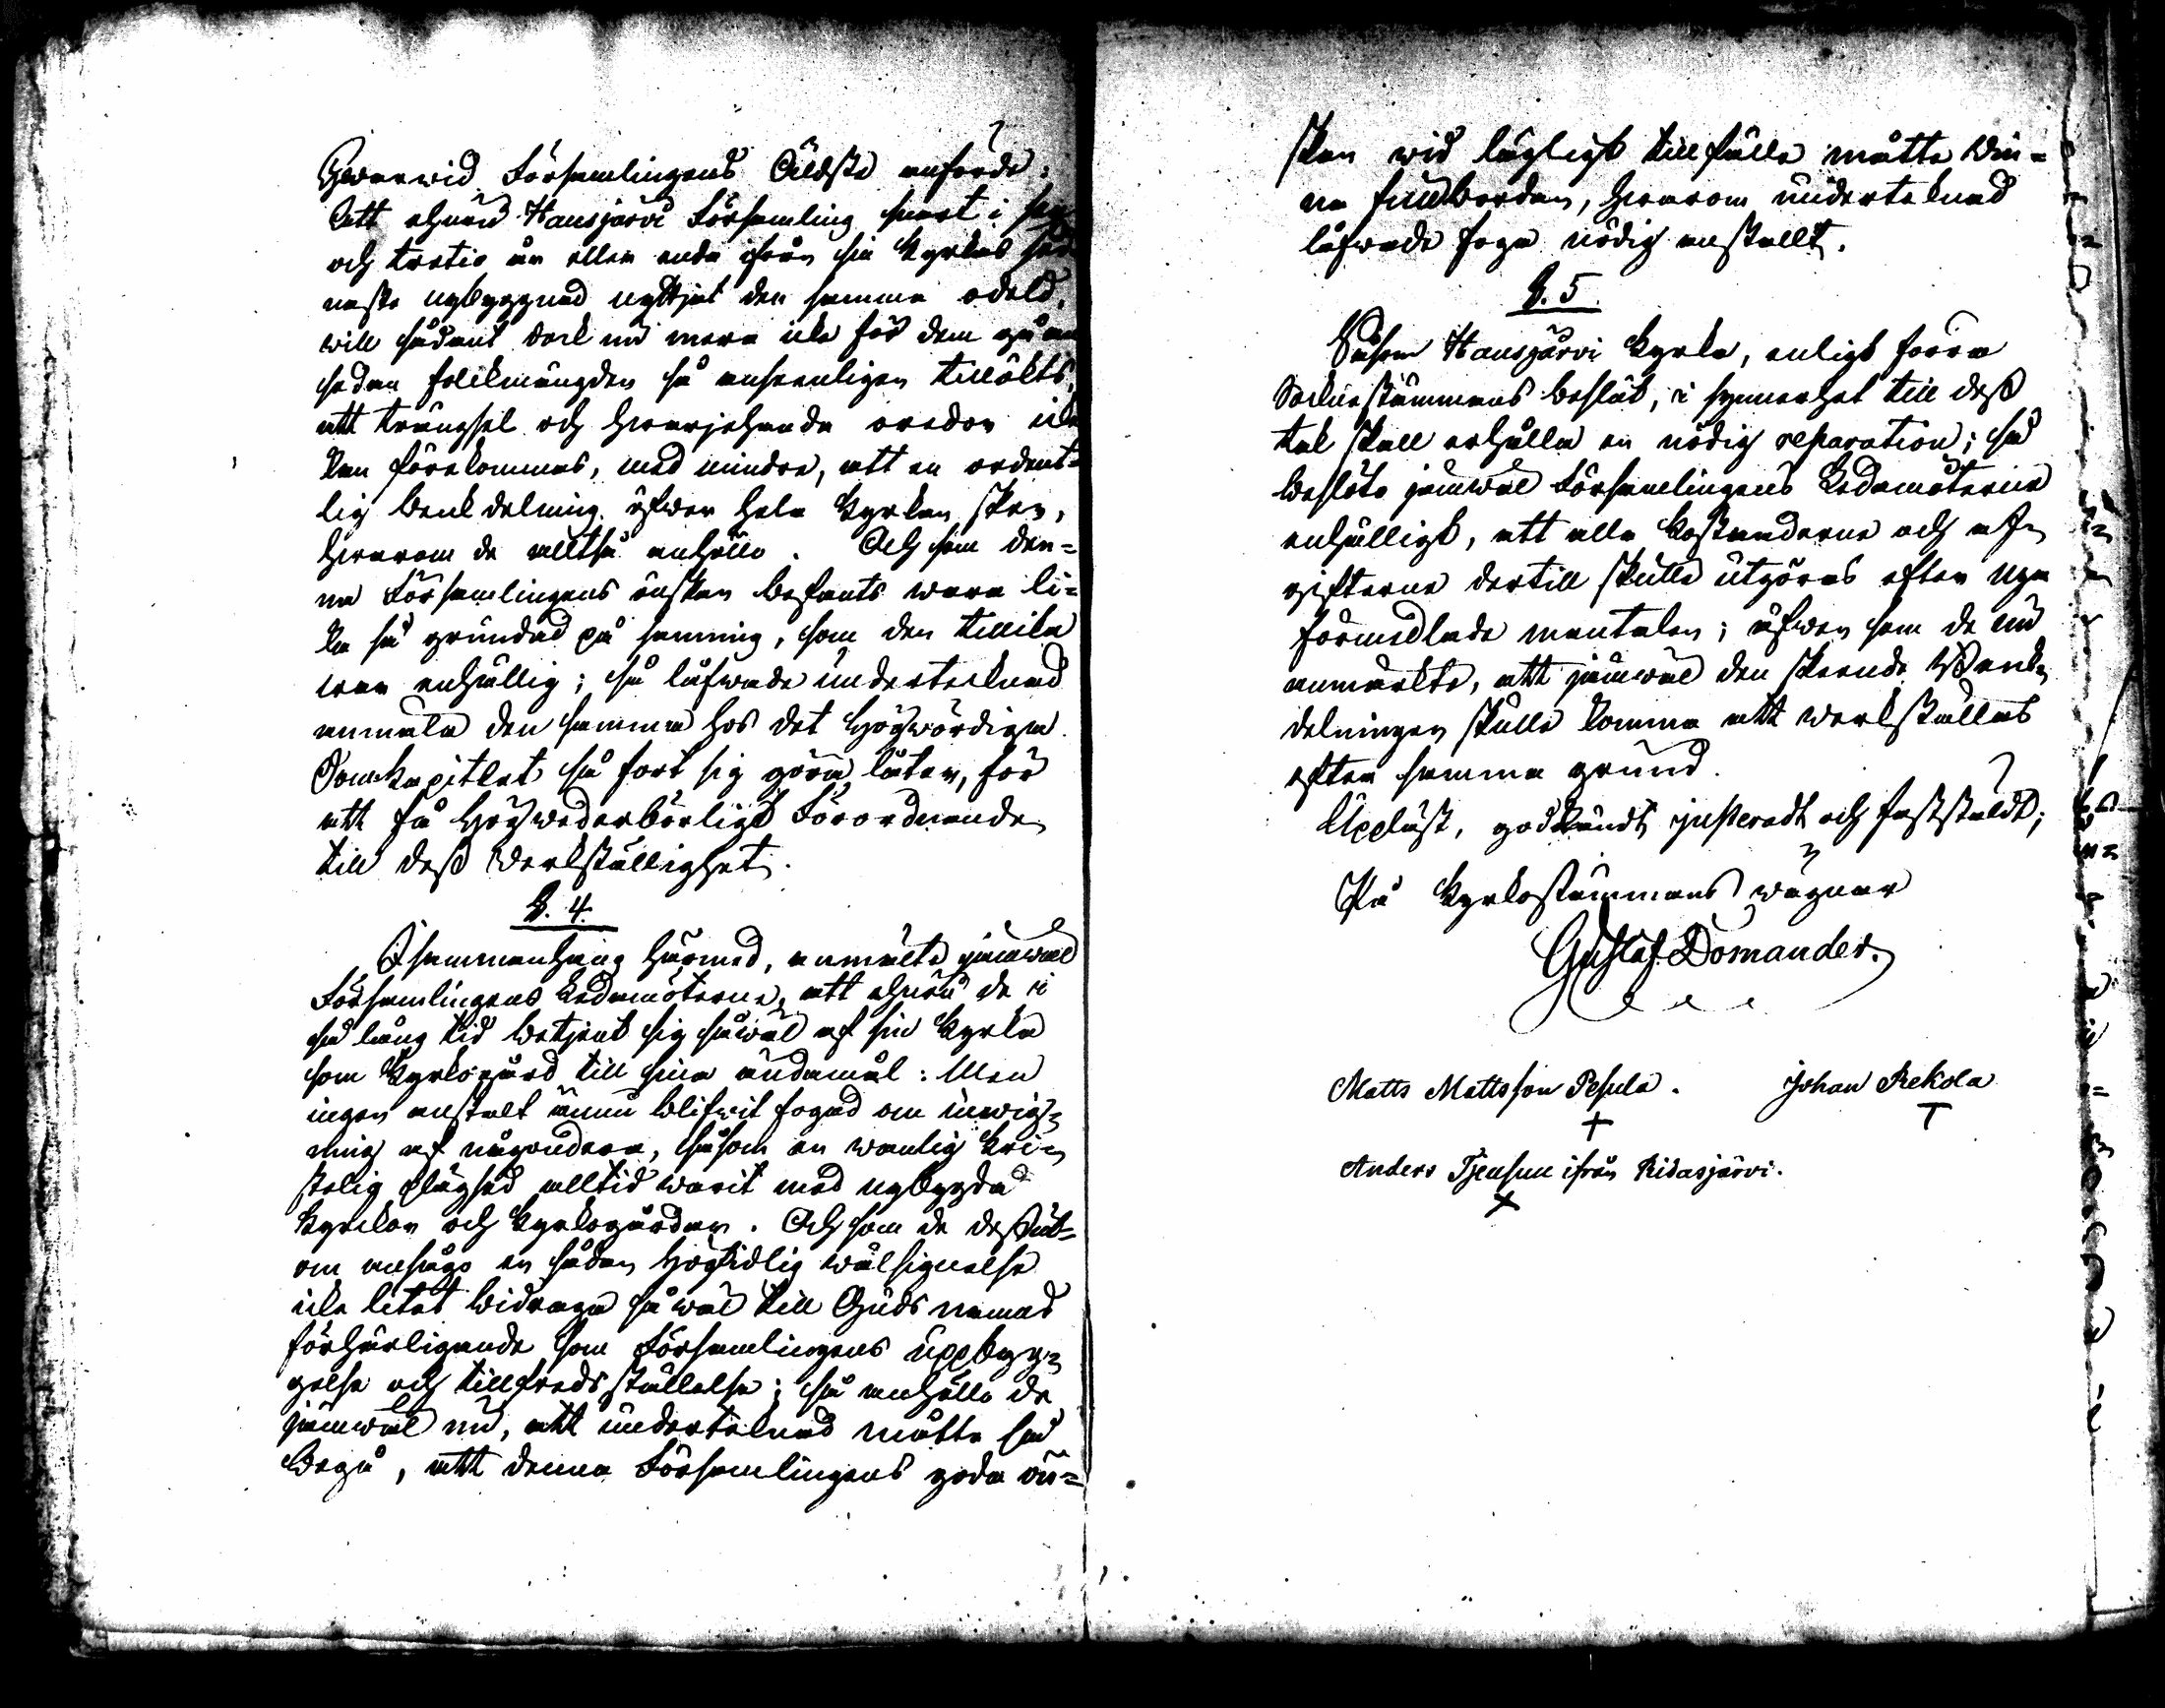 Hwarwid Församlingens Äldste anförde:
att ehuru Hausjärvi Församling snart i sex
och tretio år eller anda ifrån sin Kyrkas
nasta nybyggnad nyttjat den samma odeld,
will sådant dock nu mera icke för dem gå an
sedan folkmängden så ansenligen tillökts,
att trängsel och hwarjehanda oredor icke
kan förekommas, med mindre, att en ordent=
lig bänkdelning öfwer hela Kyrkan sker,
hwarom de alltså anhöllo. Och som den=
na Församlingens önskan befants wara li=
ka så grundad på sanning, som den tillika
war enhällig; så låfwade undertecknad
anmäla den samma hos det Högwördiga
Domkapitlet så fort sig göra låter, för
att få Högwederbörligt Förordnande
till dess werkställighet.
§. 4.
I sammanhang härmed, anmälte jämwäl
Församlingens Ledamöterne, att ehuru de i
så lång tid betjent sig såwäl af sin Kyrka
som Kyrkogård till sina ändamål: Men
ingen anstalt ännu blifwit fogad om inwig=
ning af någondera, såsom en wanlig kri=
stelig plägsed alltid warit med nybygda
Kyrkor och Kyrkogårdar. Och som de dessut=
om ansågo en sådan högtidlig wälsignelse
icke litet bidraga så wäl till Guds namns
förhärligande som Församlingens uppbyg=
gelse och tillfredsställelse; så anhöllo de
jämwäl nu, att undertecknad måtte så
begå, att denna Församlingens goda ön=
skan wid lägligt tillfälle måtte win=
na fullbordan, hwarom undertecknad
låfwade foga nödig anstallt.
§. 5.
Såsom Hausjärvi Kyrka, enligt förra
Sockenstämmans beslut, i synnerhet till dess
tak skall erhålla en nödig reparation; så
beslöto jämwäl Församlingens Ledamöterne
enhälligt, att alla kostnaderne och af=
gifterne dertill skulle utgöras efter nya
förmedlade mantalen; äfwen som de nu
anmärkte, att jämwäl den skeende Bänk=
delningen skulle komma att werkställas
efter samma grund.
Uppläst, godkändt, justeradt och fastställdt;
På Kyrkostämmans wägnar
Gustaf Domander.
Matts Mattsson Pesula. Johan Rekola
Anders Tjensuu ifrån Ridasjärvi.